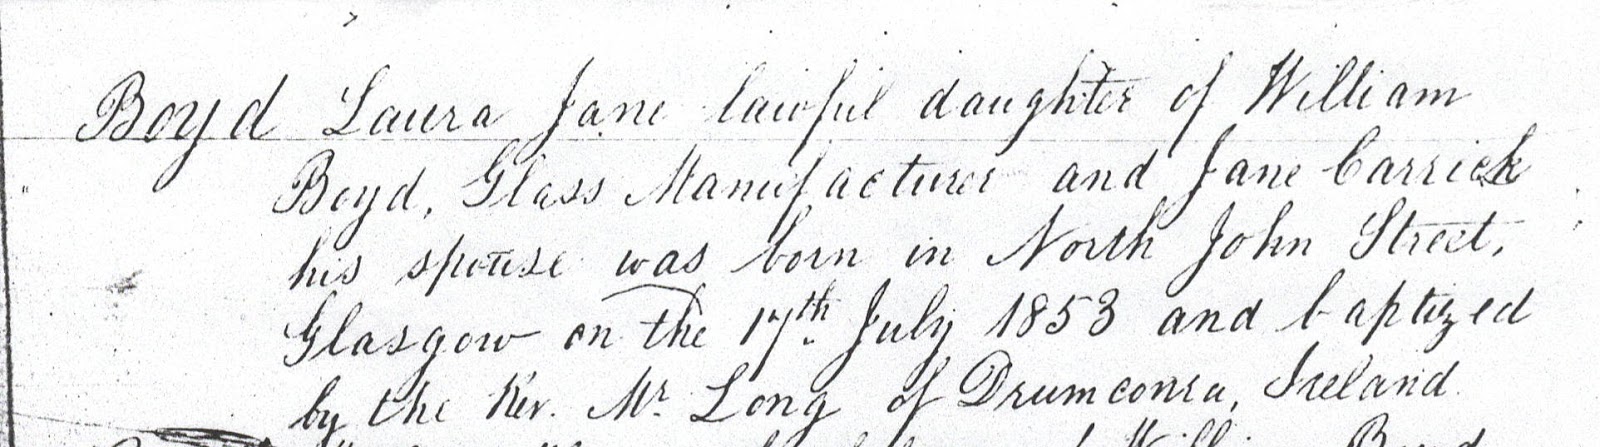 Boyd Laura Jane lawful daughter of William
Boyd, Glass Manufacturer and Jane Carrick
his spouse was born in North John Street,
Glasgow on the 17th July 1853 and baptized
by the Rev. Mr. Long of Drumconra, Ireland.
William Boyd